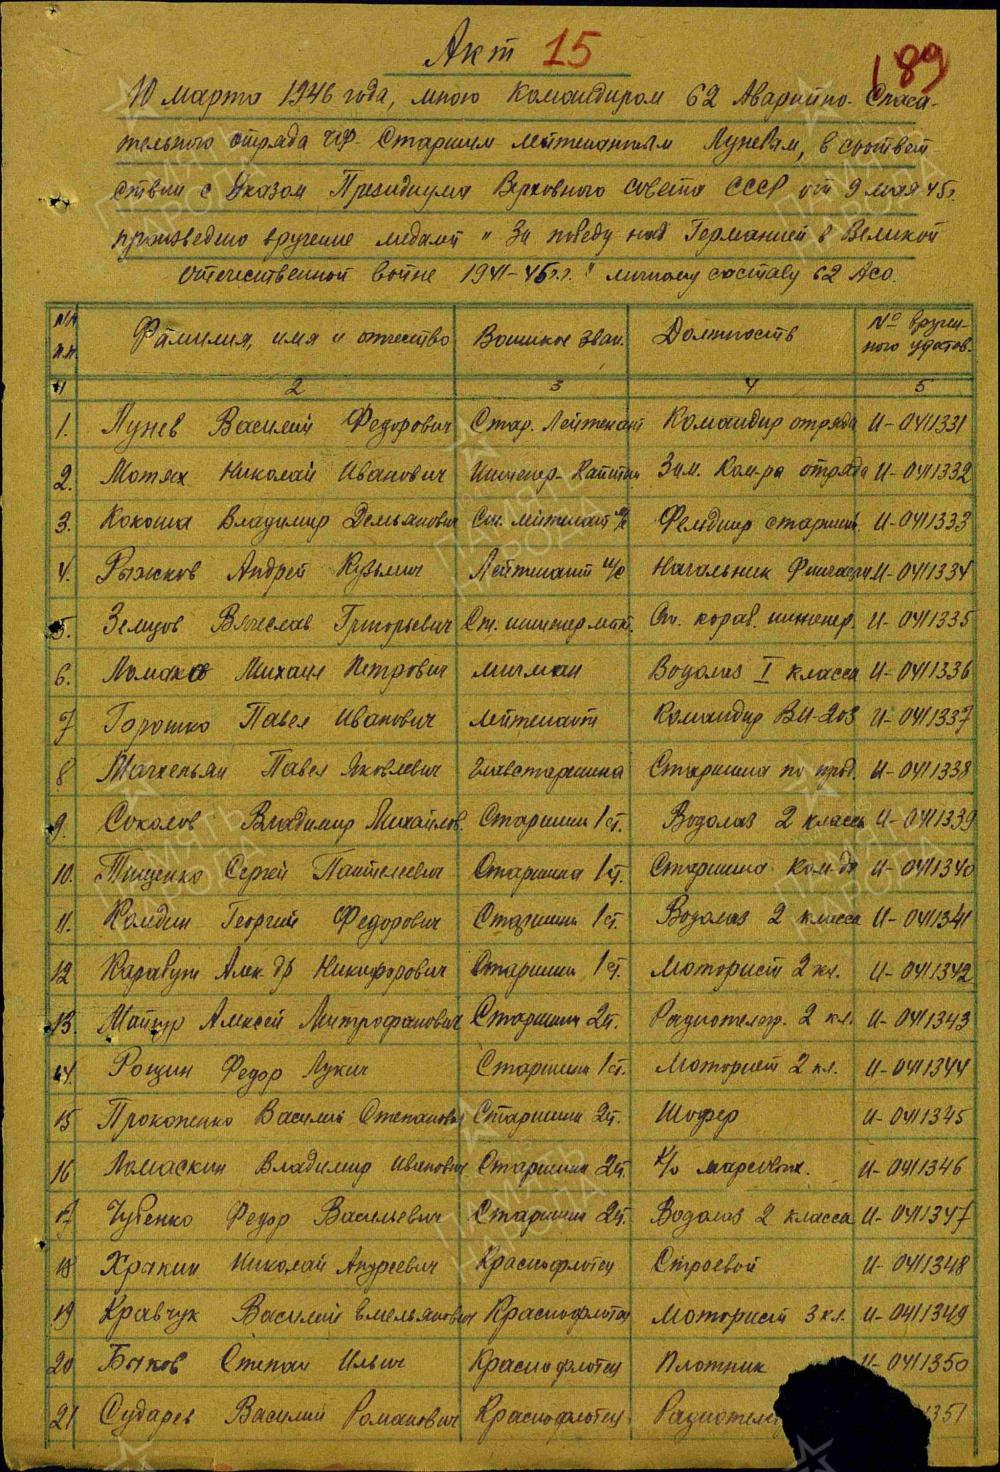 Акт 15
189
10 марта 1946 года, мною Командиром 62 Аварийно-Спаса-
тельного отряда ЧФ Старшим лейтенантом Луневым, в соответ-
ствии с Указом Президиума Верховного Совета СССР от 9 мая 45г.
произведено вручение медалей "За победу над Германией в Великой
Отечественной войне 1941-45г.г." личному составу 62 Асо.
№№ п.п. Фамилия, имя и отчество Воинское зван. Должность № вручен-ного удостов.
1 2 3 4 5
1. Лунев Василий Федорович Стар. Лейтенант Командир отряда И-0411331
2. Мотях Николай Иванович Инженер-Капитан Зам. Ком-ра отряда И-0411332
3. Кокоша Владимир Демьянович Ст. лейтенант м/с Фельдшер старший И-0411333
4. Рыжков Андрей Кузьмич Лейтенант и/с Начальник И-0411334
5. Земцов Вячеслав Григорьевич Ст. инженер лейт. Ст. кораб. инженер. И-0411335
6. Михаил Петрович мичман Водолаз I класса И-0411336
7 Горошко Павел Иванович лейтенант Командир ВМ-203 И-0411337
8 Павел Яковлевич Главстаршина Старшина по прод. И-0411338
9. Соколов Владимир Михайлов. Старшина 1 ст. Водолаз 2 класса И-0411339
10. Тищенко Сергей Пантелеевич Старшина 1 ст. Старшина ком-ды И-0411340
11. Георгий Федорович Старшина 1 ст. Водолаз 2 класса И-0411341
12 Карабут Алек-др Никифорович Старшина 1 ст. Моторист 2 кл. И-0411342
13. Алексей Митрофанович Старшина 2 ст. Радиотелегр. 2 кл. И-0411343
14. Рощин Федор Лукич Старшина 1 ст. Моторист 2 кл. И-0411344
15 Прокопенко Василий Степанович Старшина 2 ст. Шофер И-0411345
16 Ломаскин Владимир Иванович Старшина 2 ст. К/о И-0411346
17 Чубенко Федор Васильевич Старшина 2 ст. Водолаз 2 класса И-0411347
18 Хракин Николай Андреевич Краснофлотец Строевой И-0411348
19 Кравчук Василий Емельянович Краснофлотец Моторист 3 кл. И-0411349
20 Быков Степан Ильич Краснофлотец Плотник И-0411350
21 Сударев Василий Романович Краснофлотец Радиотеле 1351
ПАМЯТЬ НАРОДА